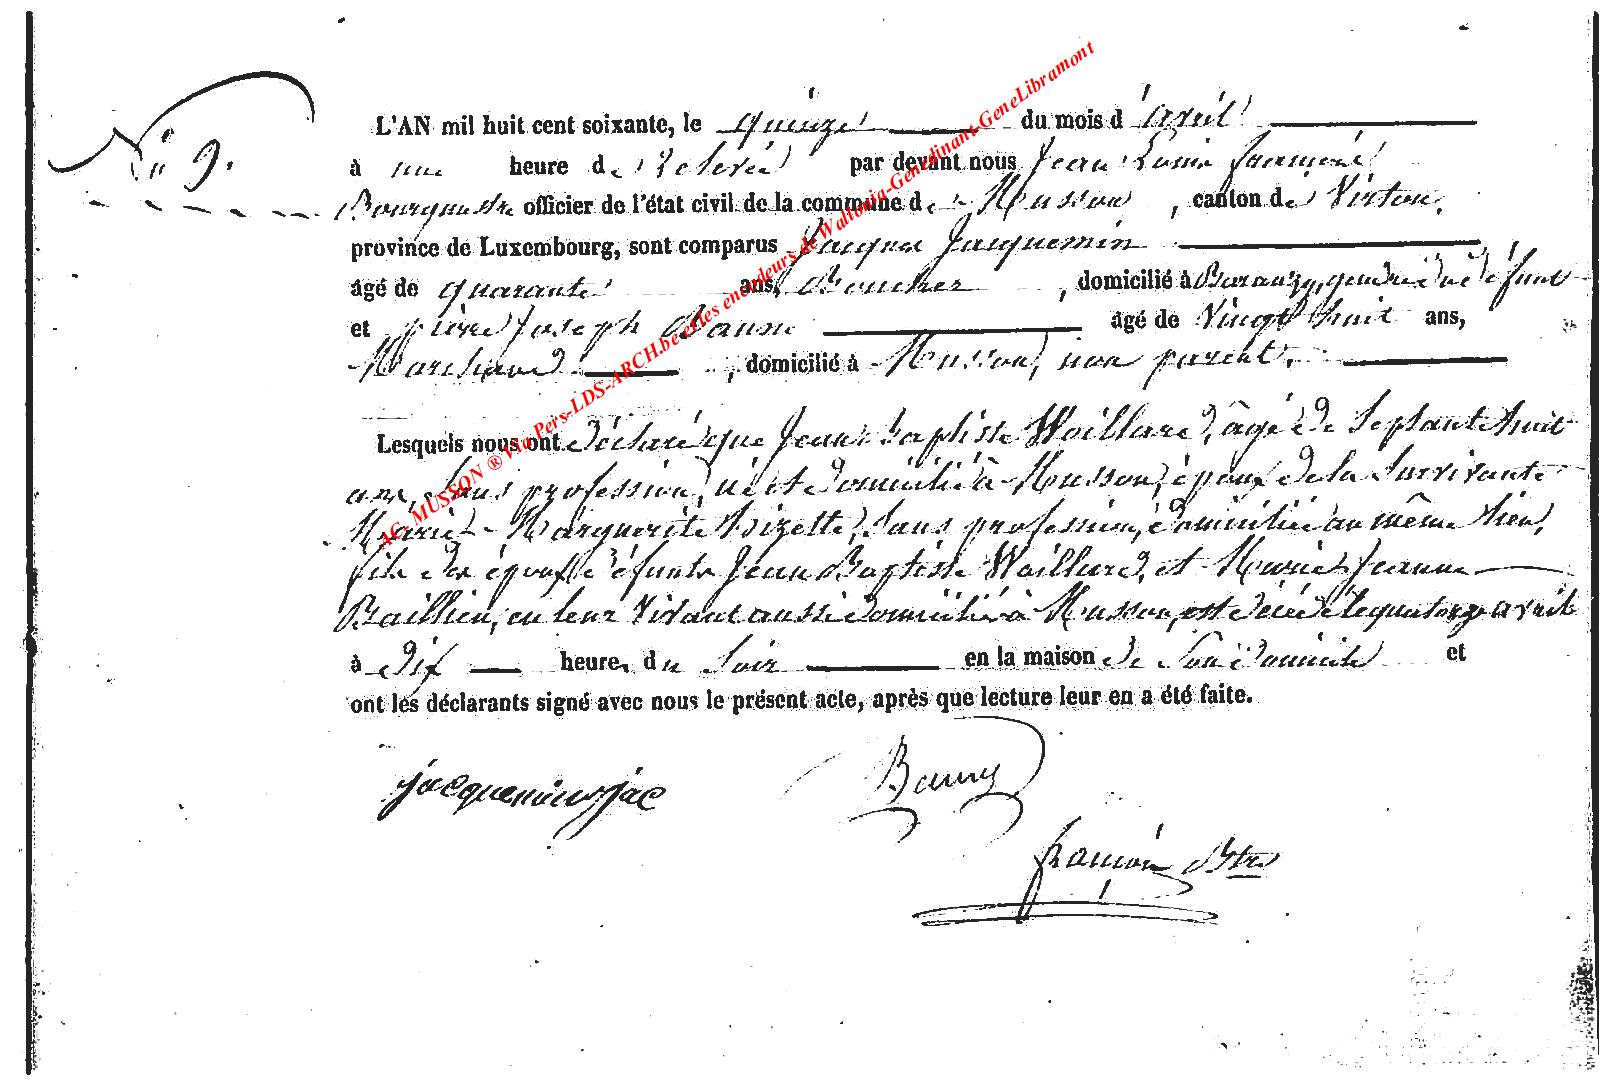 N° 9.
L'AN mil huit cent soixante, le quinze du mois d'avril
à une heure de relevée par devant nous Jean Louis françois
Bourgmestre officier de l'état civil de la commune de Musson, canton de Virton,
province de Luxembourg, sont comparus Jacques Jacquemin
agé de quarante ans, Boucher, domicilié à Baranzy, gendre du défunt
et pierre Joseph agé de Vingt huit ans,
Marchand, domicilié à Musson, non parent.
Lesquels nous ont déclaré que Jean Baptiste Waillard, âgé de Septante huit
ans, Sans profession, né et domicilié à Musson, époux de la Survivante
Marie-Marguerite Sans profession, domiciliée au même lieu,
fils des époux défunts Jean Baptiste Waillard, et Marie Jeanne
Baillieu, en leur vivant aussi domiciliés à Musson, est décédé le quatorze avril
à dix heures du Soir en la maison de Son domicile et
ont les déclarants signé avec nous le présent acte, après que lecture leur en a été faite.
jacquemin jac
françois Btre
AC- MUSSON ® Via Pers-LDS-ARCH.be et les encodeurs de Wallonia-Genedinant-GeneLibramont